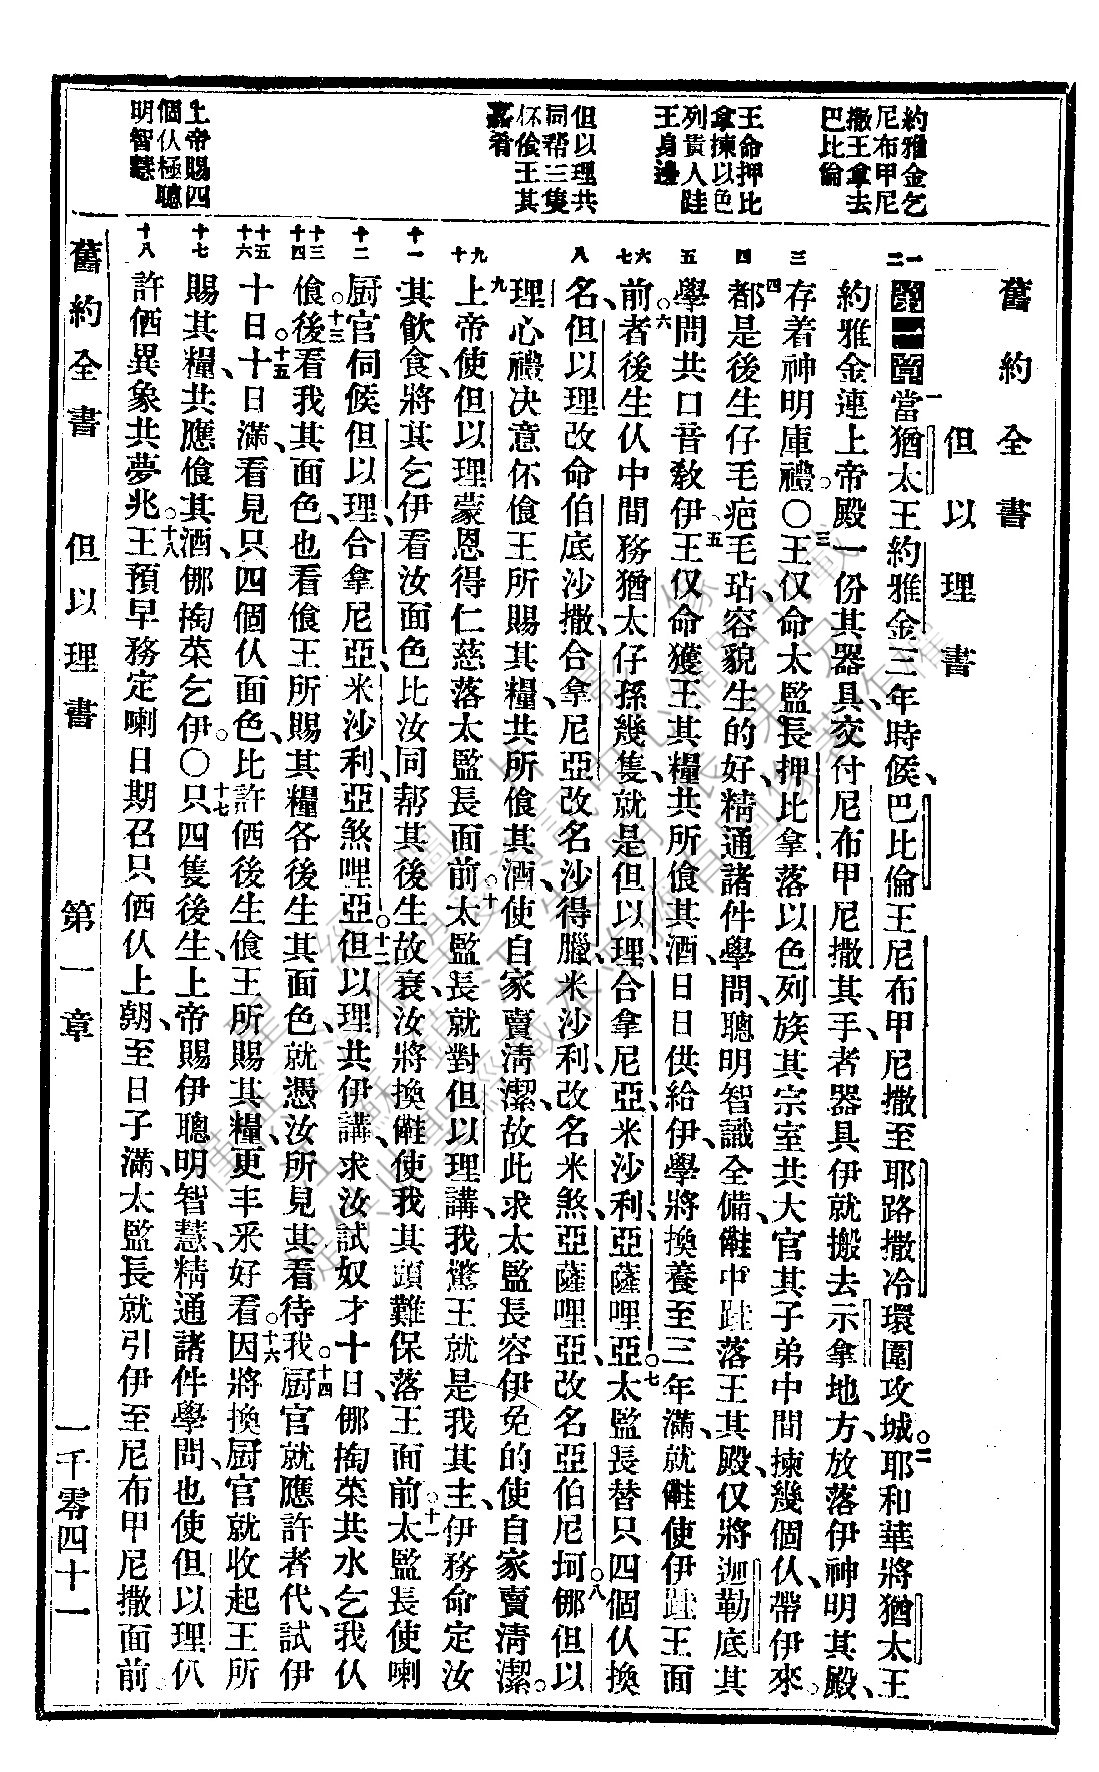 舊約全書
但以理書
約雅金乞
尼布甲尼
撒王拿去
巴比倫
王命押比
拿揀以色
列貴人跬
王身邊
但以理共
同帮三隻
伓飧王其
嘉肴
上帝賜四
個仈極聰
明智慧
第一章 一當猶太王約雅金三年時候、巴比倫王尼布甲尼撒至耶路撒冷環圍攻城。二耶和華將猶太王
約雅金連上帝殿一份其器具、交付尼布甲尼撒其手、者器具伊就搬去示拿地方、放落伊神明其殿、
存着神明庫禮。〇三王仅命太監長押比拿落以色列族其宗室共大官其子弟中間揀幾個仈、帶伊來。
四都是後生仔毛疤毛玷、容貌生的好、精通諸件學問、聰明智識全備、㑅中跬落王其殿、仅將迦勒底其
學問共口音敎伊、五王仅命獲王其糧共所飧其酒、日日供給伊、學將換養至三年滿、就㑅使伊跬王面
前。六者後生仈中間務猶太仔孫幾隻、就是但以理、合拿尼亞、米沙利、亞薩哩亞。七太監長替只四個仈換
名、但以理改命伯底沙撒、合拿尼亞改名沙得臘、米沙利改名米煞、亞薩哩亞改名亞伯尼坷。八㑚但以
理心禮决意伓飧王所賜其糧、共所飧其酒、使自家賣清潔、故此求太監長容伊免的使自家賣清潔。
九上帝使但以理蒙恩得仁慈落太監長面前。十太監長就對但以理講、我驚王就是我其主、伊務命定汝
其飲食、將其乞伊看汝面色比汝同帮其後生故衰、汝將換㑅使我其頭難保落王面前。十一太監長使喇
厨官伺候但以理、合拿尼亞、米沙利、亞煞哩亞。十二但以理共伊講、求汝試奴才十日、㑚掏菜共水、乞我仈
飧。十三後看我其面色、也看飧王所賜其糧各後生其面色、就憑汝所見其看待我。十四厨官就應許者代、試伊
十日。十五十日滿、看見只四個仈面色、比許㑄後生飧王所賜其糧、更丰采好看。十六因將換、厨官就收起王所
賜其糧、共應飧其酒、㑚掏菜乞伊。〇十七只四隻後生、上帝賜伊聰明智慧、精通諸件學問、也使但以理仈
許㑄異象共夢兆。十八王預早務定喇日期召只㑄仈上朝、至日子滿、太監長就引伊至尼布甲尼撒面前
舊約全書 但以理書 第一章 一千零四十一